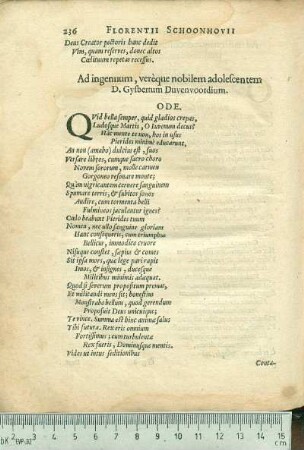 236 FLORENTII SCHOONHOVII
Deus Creator pectoris hanc dedit
Vim, quam reserves, donec altos
Cælituum repetas recessus.
Ad ingenuum, verèque nobilem adolescentem
D. Gysbertum Duvenvoordium.
ODE.
QVid bella semper, quid gladios crepas,
Ludosque Martis, O Iuvenum decus?
Hac mente te non, hos in usus
Pierides minimè educarunt.
An non (amabo) dulcius est, suos
Versare libros, cumque sacro choro
Novem sororum, molle carmen
Gorgoneo resonare monte;
Quàm nigricantem cernere sanguinem
Spumare terris, & subitos sonos
Audire, cum tormenta belli
Fulmineas jaculantur igneis?
Cudo beabunt Pierides tuum
Nomen, nec ullo sanguine gloriam
Hanc consequeris; cum triumphus
Bellicus, immodico cruore
Nisique constet, sæpius & comes
Sit ipsa mors, quæ lege pari rapit
Imos, & insignes, ducesque
Militibus minimis adæquat.
Quod si severum propositum premas,
Et militandi mens sit; honestius
Monstrabo bellum, quod gerendum
Proposuit Deus unicuique;
Te vince. Summa est hinc animæ salus
Tibi futura. Rex eris omnium
Fortissimus; cum turbulenta
Rex fueris, Dominusque mentis.
Vides ut intus seditionibus
1 2 3 4 5 6 7 8 9 10 11 12 13 14 15
cm